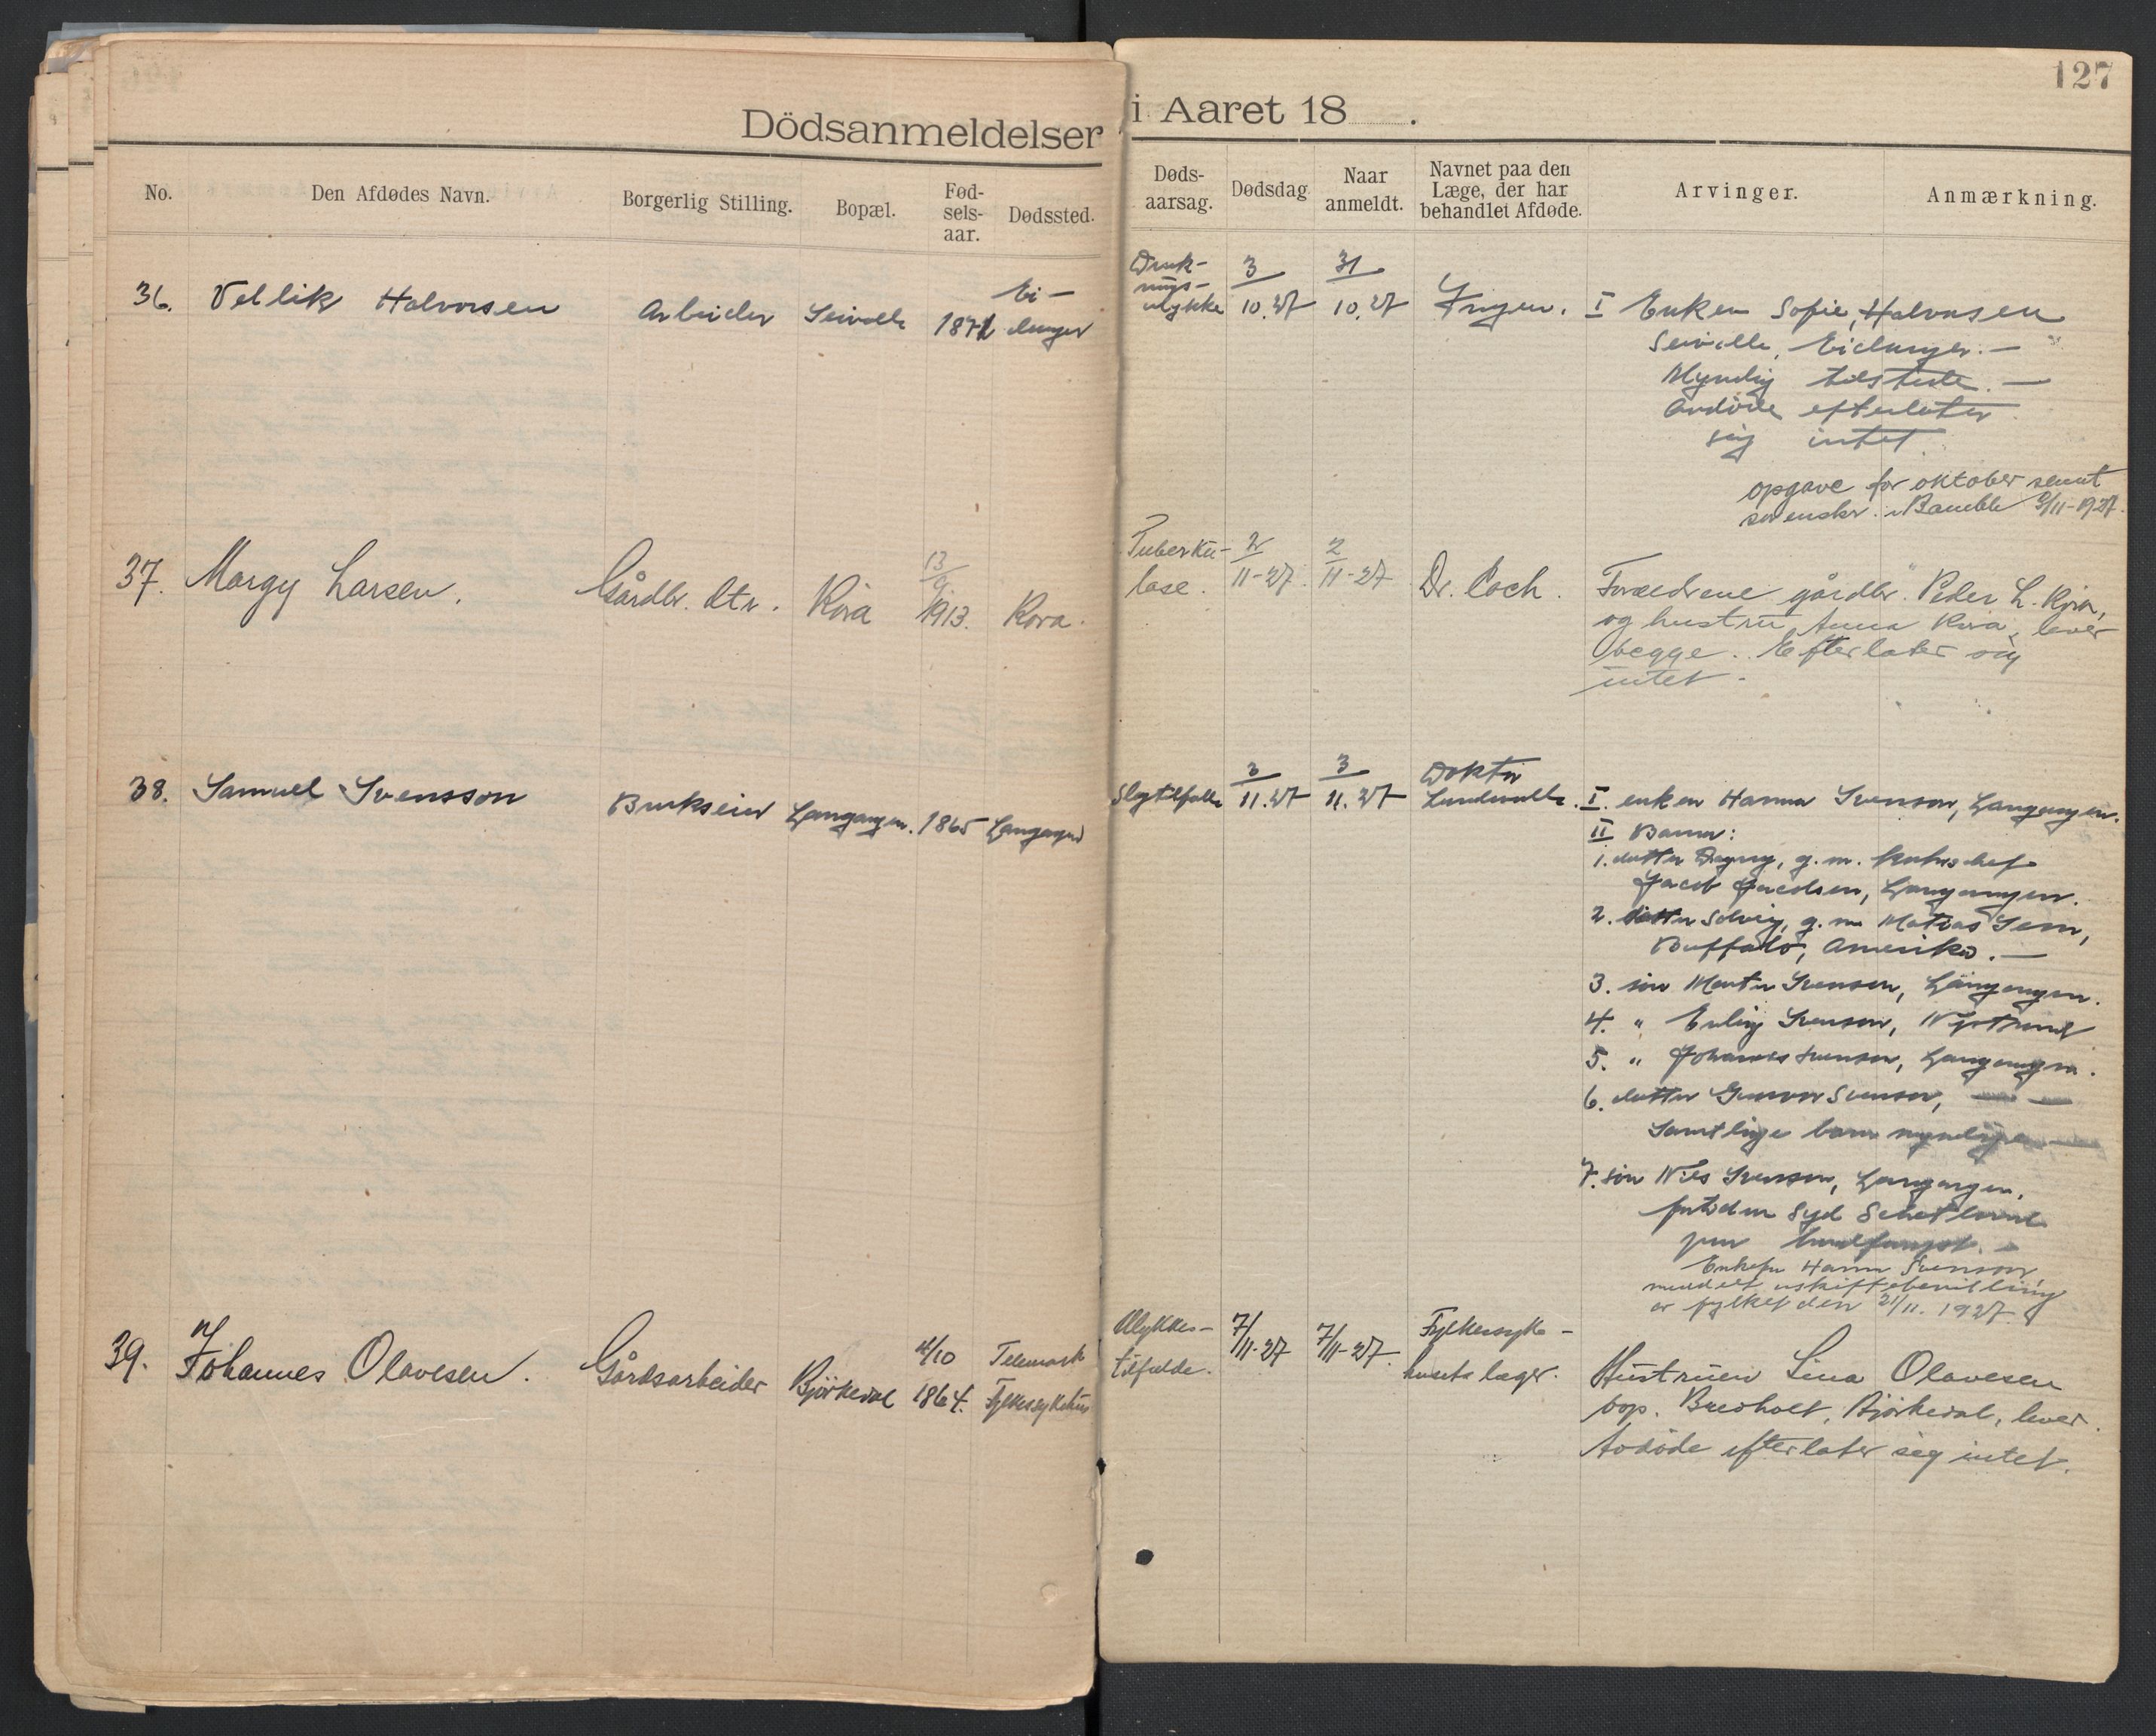 127
Dödsanmeldelser i Aaret 18 .
No.
Den Afdødes Navn.
Borgerlig Stilling.
Bopæl.
Fød-
sels-
aar.
Dødssted.
Døds-
aarsag.
Dødsdag
Naar
anmeldt.
Navnet paa den
Læge, der har
behandlet Afdøde.
Arvinger.
Anmærkning.
36. Vellik Halvorsen
Arbeider
187
Ei-
danger
Druk-
nings-
ulykke
3/10.27
31/10.27
Ingen.
I Enken Sofie Halvorsen
Eidanger. —
Myndig tilstede. —
Avdöde efterlater
sig intet
opgave for oktober sendt
sorenskr. i Bamble 3/11-1927.
37. Margy Larsen.
Gårdbr. dtr.
Röra
13/9
1913.
Rora.
Tuberku-
lose.
2/11-27.
2/11-27
Dr. Coch.
Foreldrene gårdbr. Peder L. Röra,
og hustrü Anna Röra, lever
begge. Efterlater sig
intet.
38. Samuel Svensson
Brukseier
Langangen.
1865
Langangen
Slagtilfælle
3/11.27
3/11.27
Doktor
Lundevall.
I. enken Hanna Svenson, Langangen.
II Barn:
1. datter Dagny, g. m.
Jacob Jacobsen, Langangen.
2. datter Solveig, g. m. Matias Sem,
Buffalo, Amerika. —
3. sön Martin Svenson, Langangen.
4. " Erling Svenson,
5. " Johannes Svenson, Langangen.
6. datter Gunvor Svenson, — —
Samtlige barn myndige —
7. sön Nils Svenson, Langangen,
fortiden Syd Schetland
paa hvalfangst. —
Enkefru Hanna Svenson,
meddelt uskiftebevilling
av fylket den 21/11. 1927
39. Johannes Olavesen.
Gårdsarbeider
Björkedal
/10
1864.
Telemark
Fylkessykehus
Ulykkes-
tilfælde.
7/11-27
7/11-27.
Fylkessyke-
husets læger.
Hustrüen Lina Olavesen
bop. Björkedal, lever.
Avdöde efterlater sig intet.